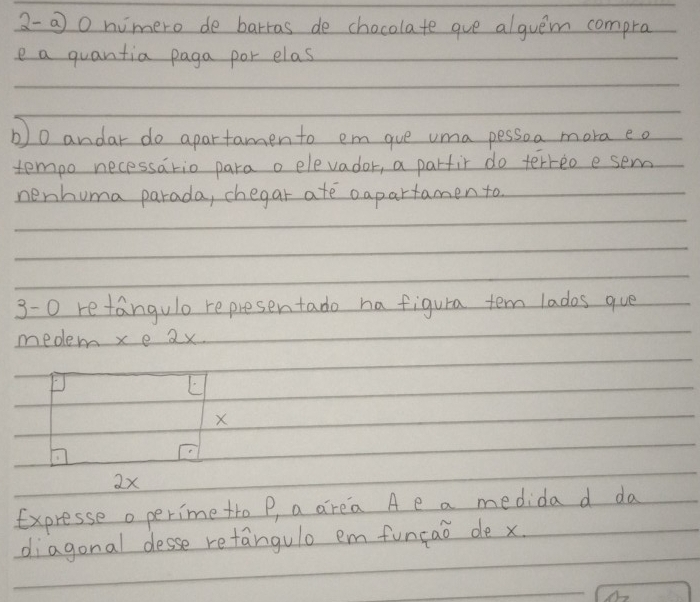 2-a) O número de barras de chocolate que alguém compra
e a quantia paga por elas
b) O andar do apartamento em que uma pessoa mora e o
tempo necessário para o elevador, a partir do térréo e sem
nenhuma parada, chegar até o apartamento.
3-O retângulo representado na figura tem lados que
medem x e 2x.
x
2x
Expresse o perímetro P, a área A e a medida d da
diagonal desse retângulo em função de x.